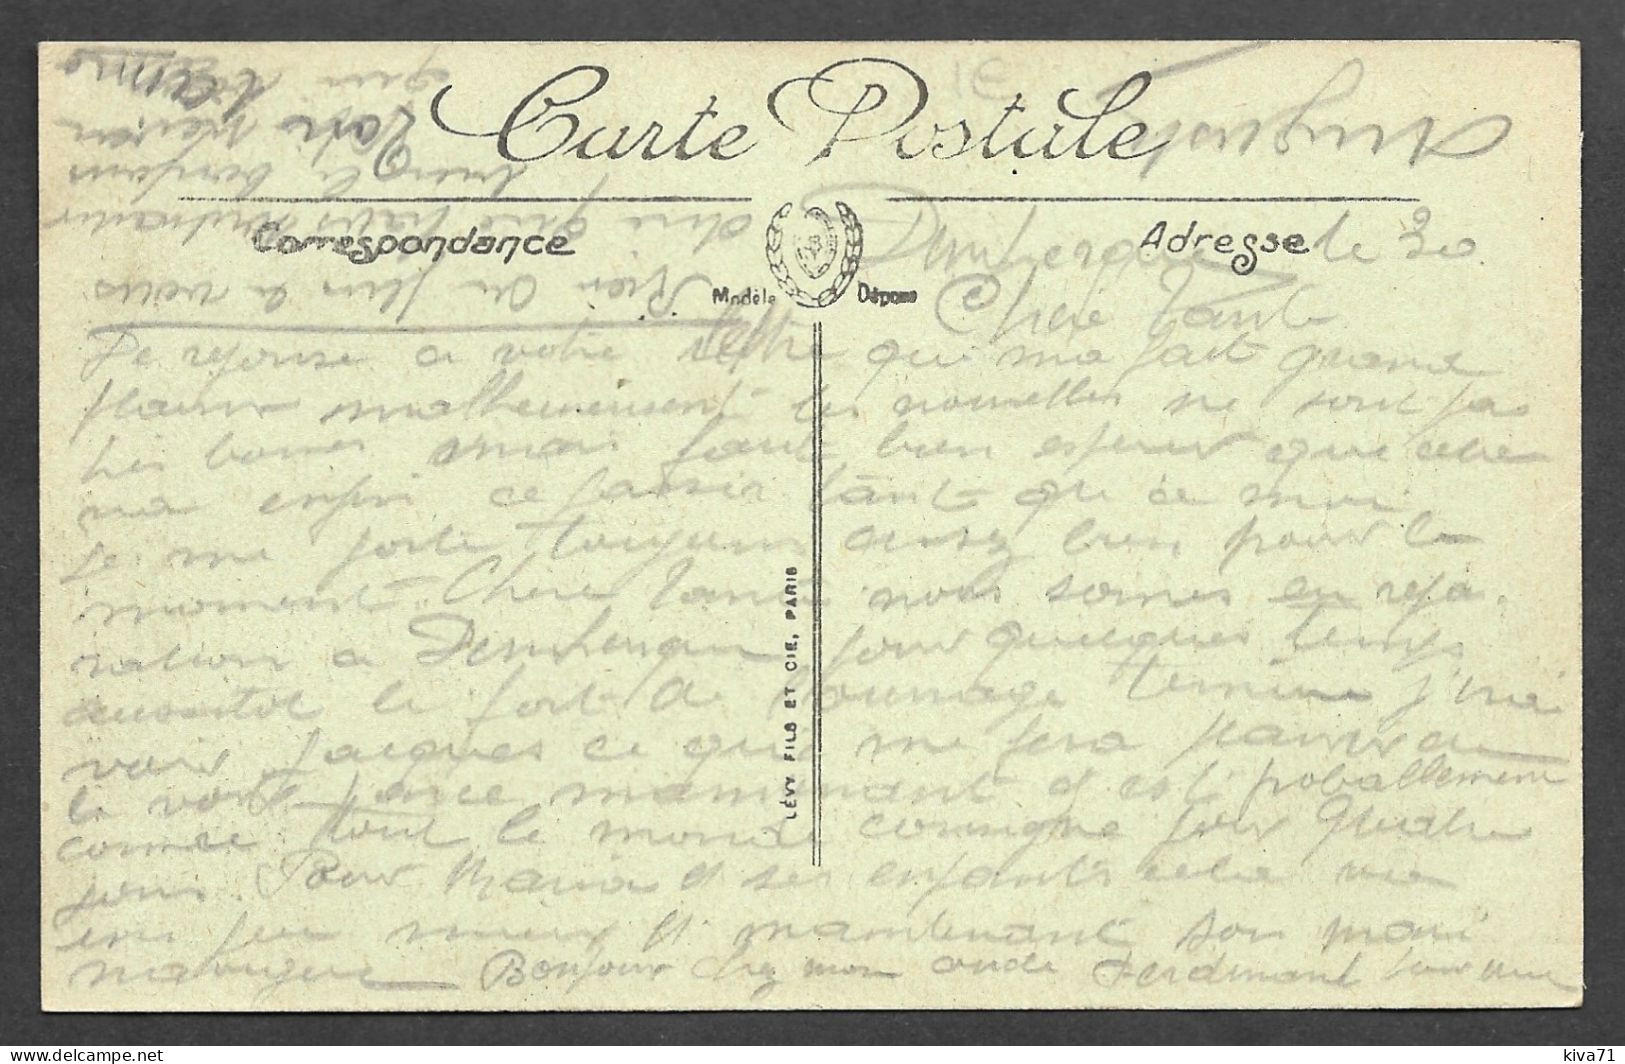 Carte Postale
Correspondance
Adresse
Modèle Déposé
LÉVY FILS ET CIE, PARIS
Dunkerque le 30
Chère Tante
De reponse a votre lettre qui ma fait grand
plaisir malheureusement les nouvelles ne sont pas
tres bonnes mais faut bien esperer que cela
va enfin ce passer tant que a moi
je me porte toujours assez bien pour le
moment. Chere Tante nous somes en repa-
ration a Dunkerque pour quelques temps
aussitot le fort de l'ouvrage termine j'irai
voir Jacques ce qui me fera plaisir de
le voir maintenant et est proballement
comme tout le monde consigne pour quatre
jours. Pour Maria et ses enfants cela va
un peu mieux et maintenant son mari
navigue Bonjour chez mon oncle Ferdinant
Rien de plus a vous
dire que
le bonjour
votre neveu
qui
Auguste
kiva71